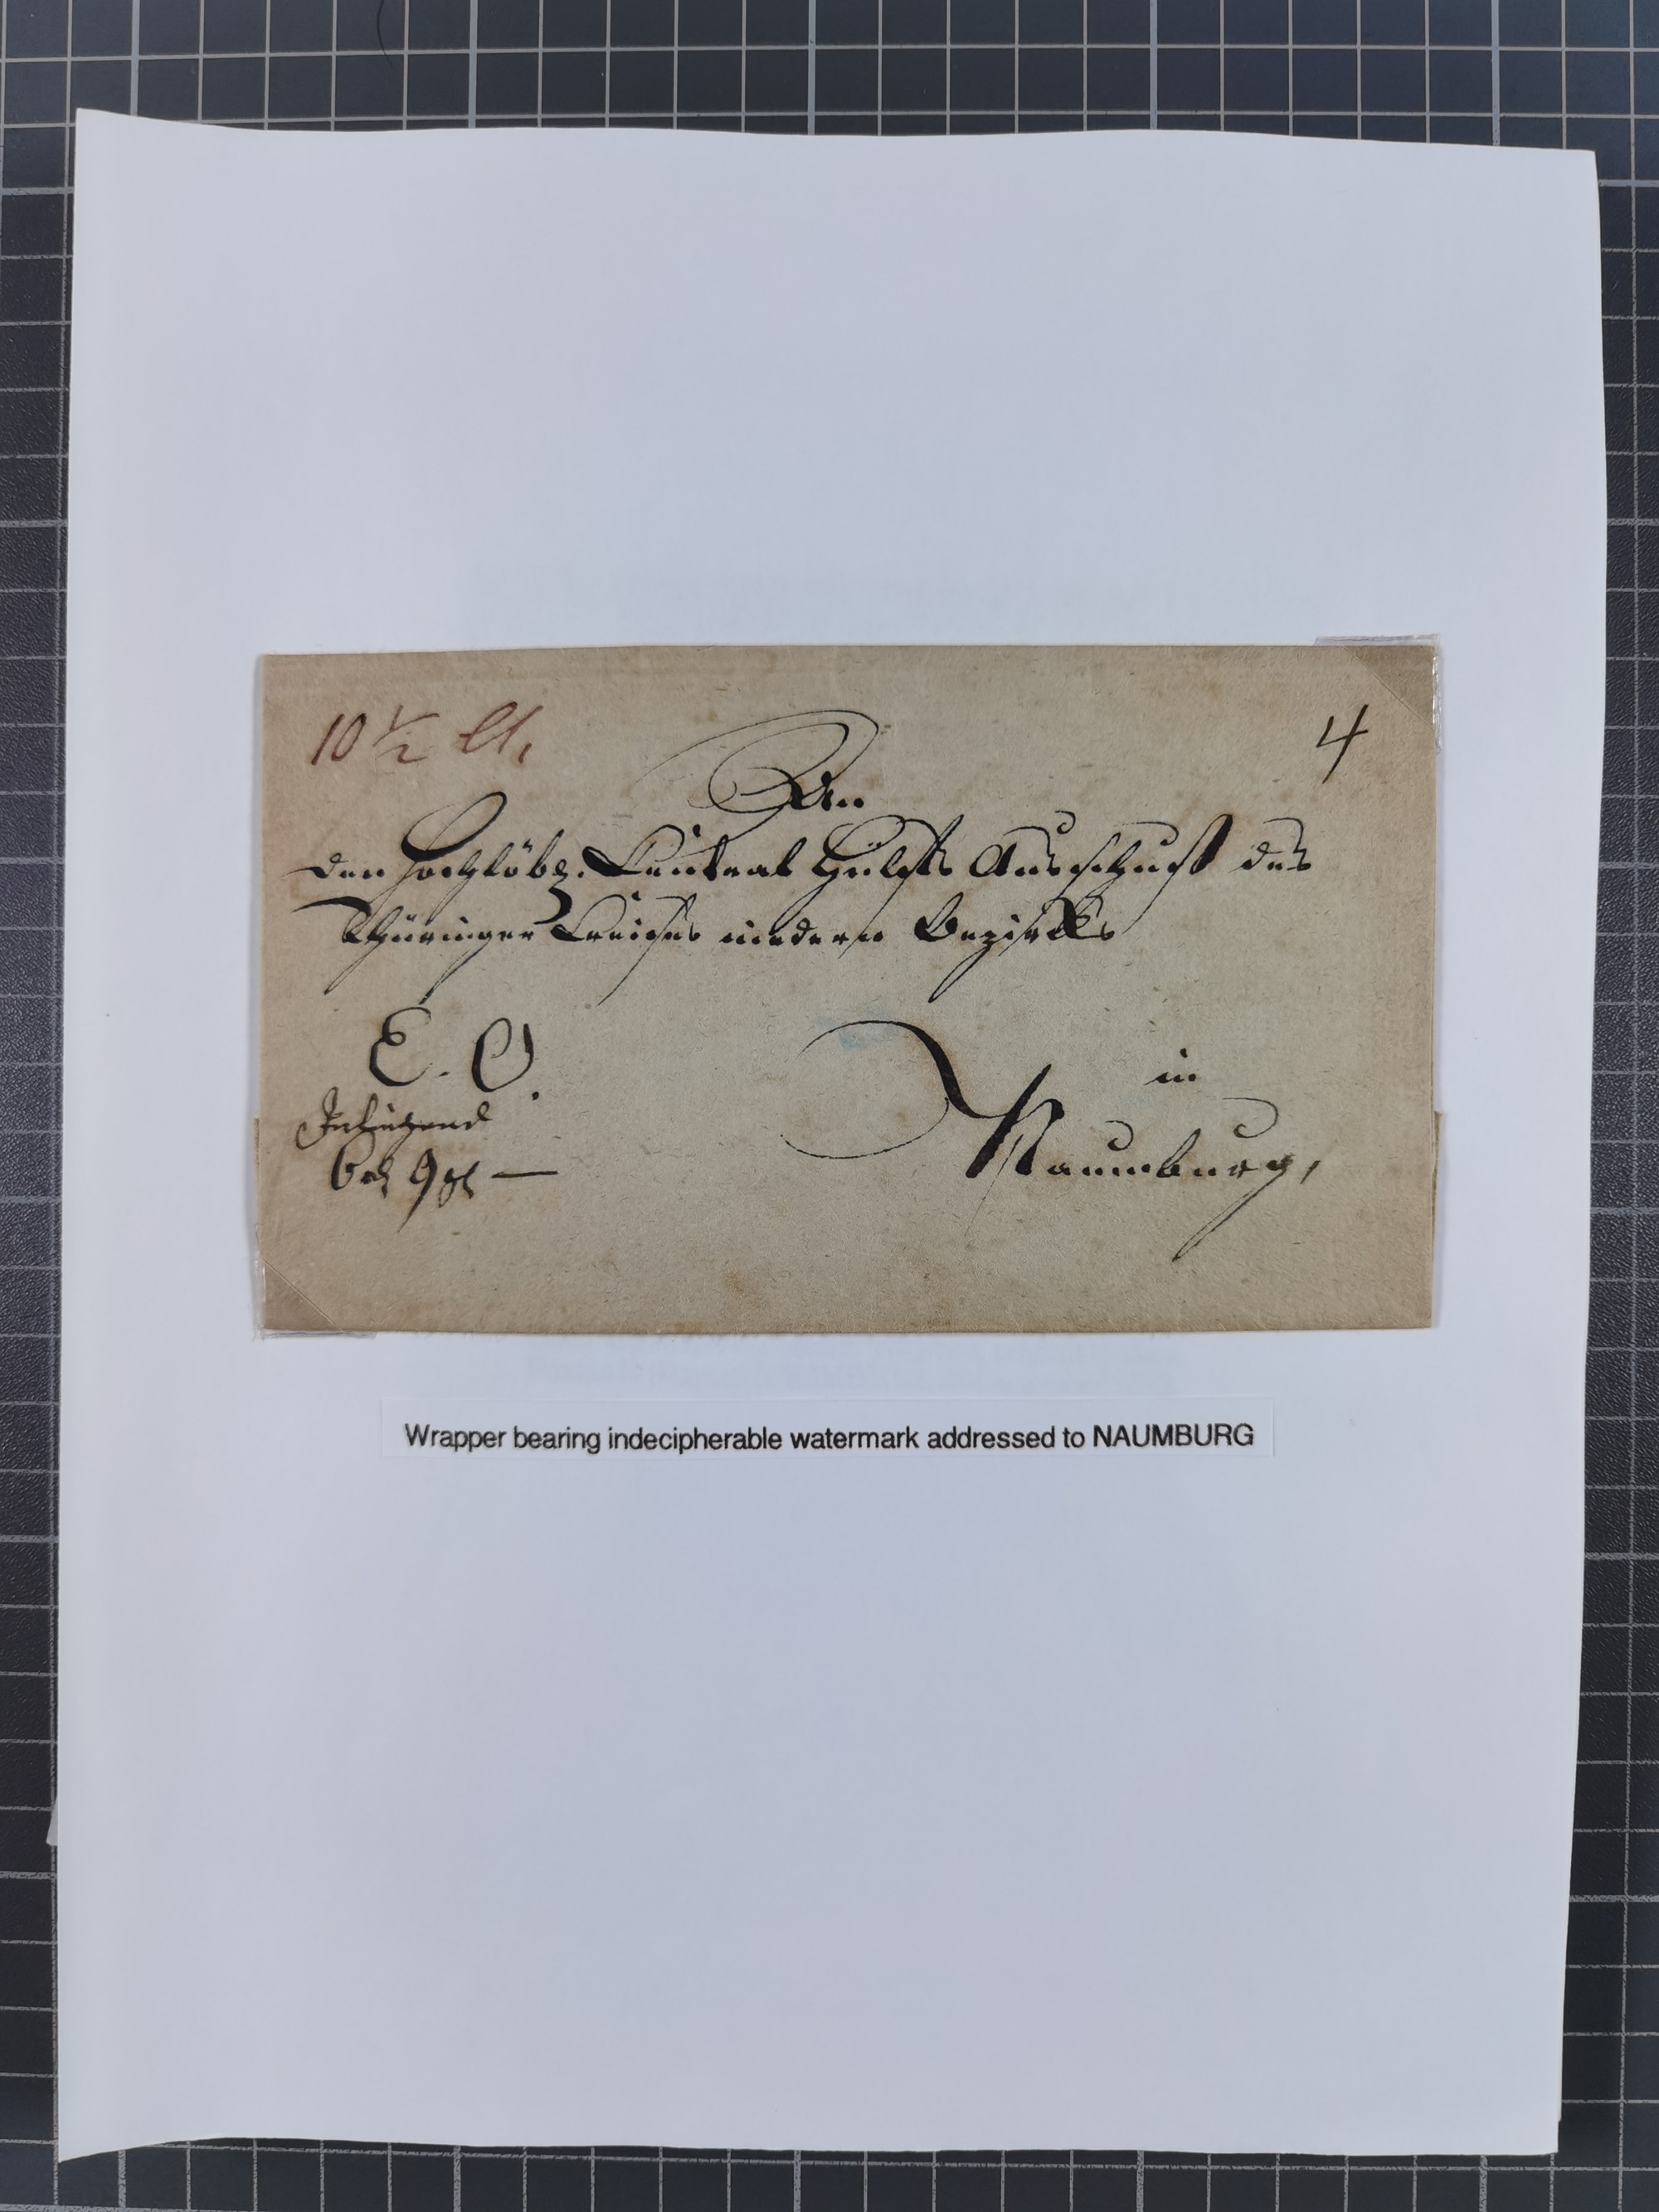 10 1/2 Lt.
4
An
den Hochlöbl. Central Hülfs Ausschuß des
Thüringer Creises niedern Bezirks
E. O.
Inliegend
9 gl —
in
Naumburg,
Wrapper bearing indecipherable watermark addressed to NAUMBURG